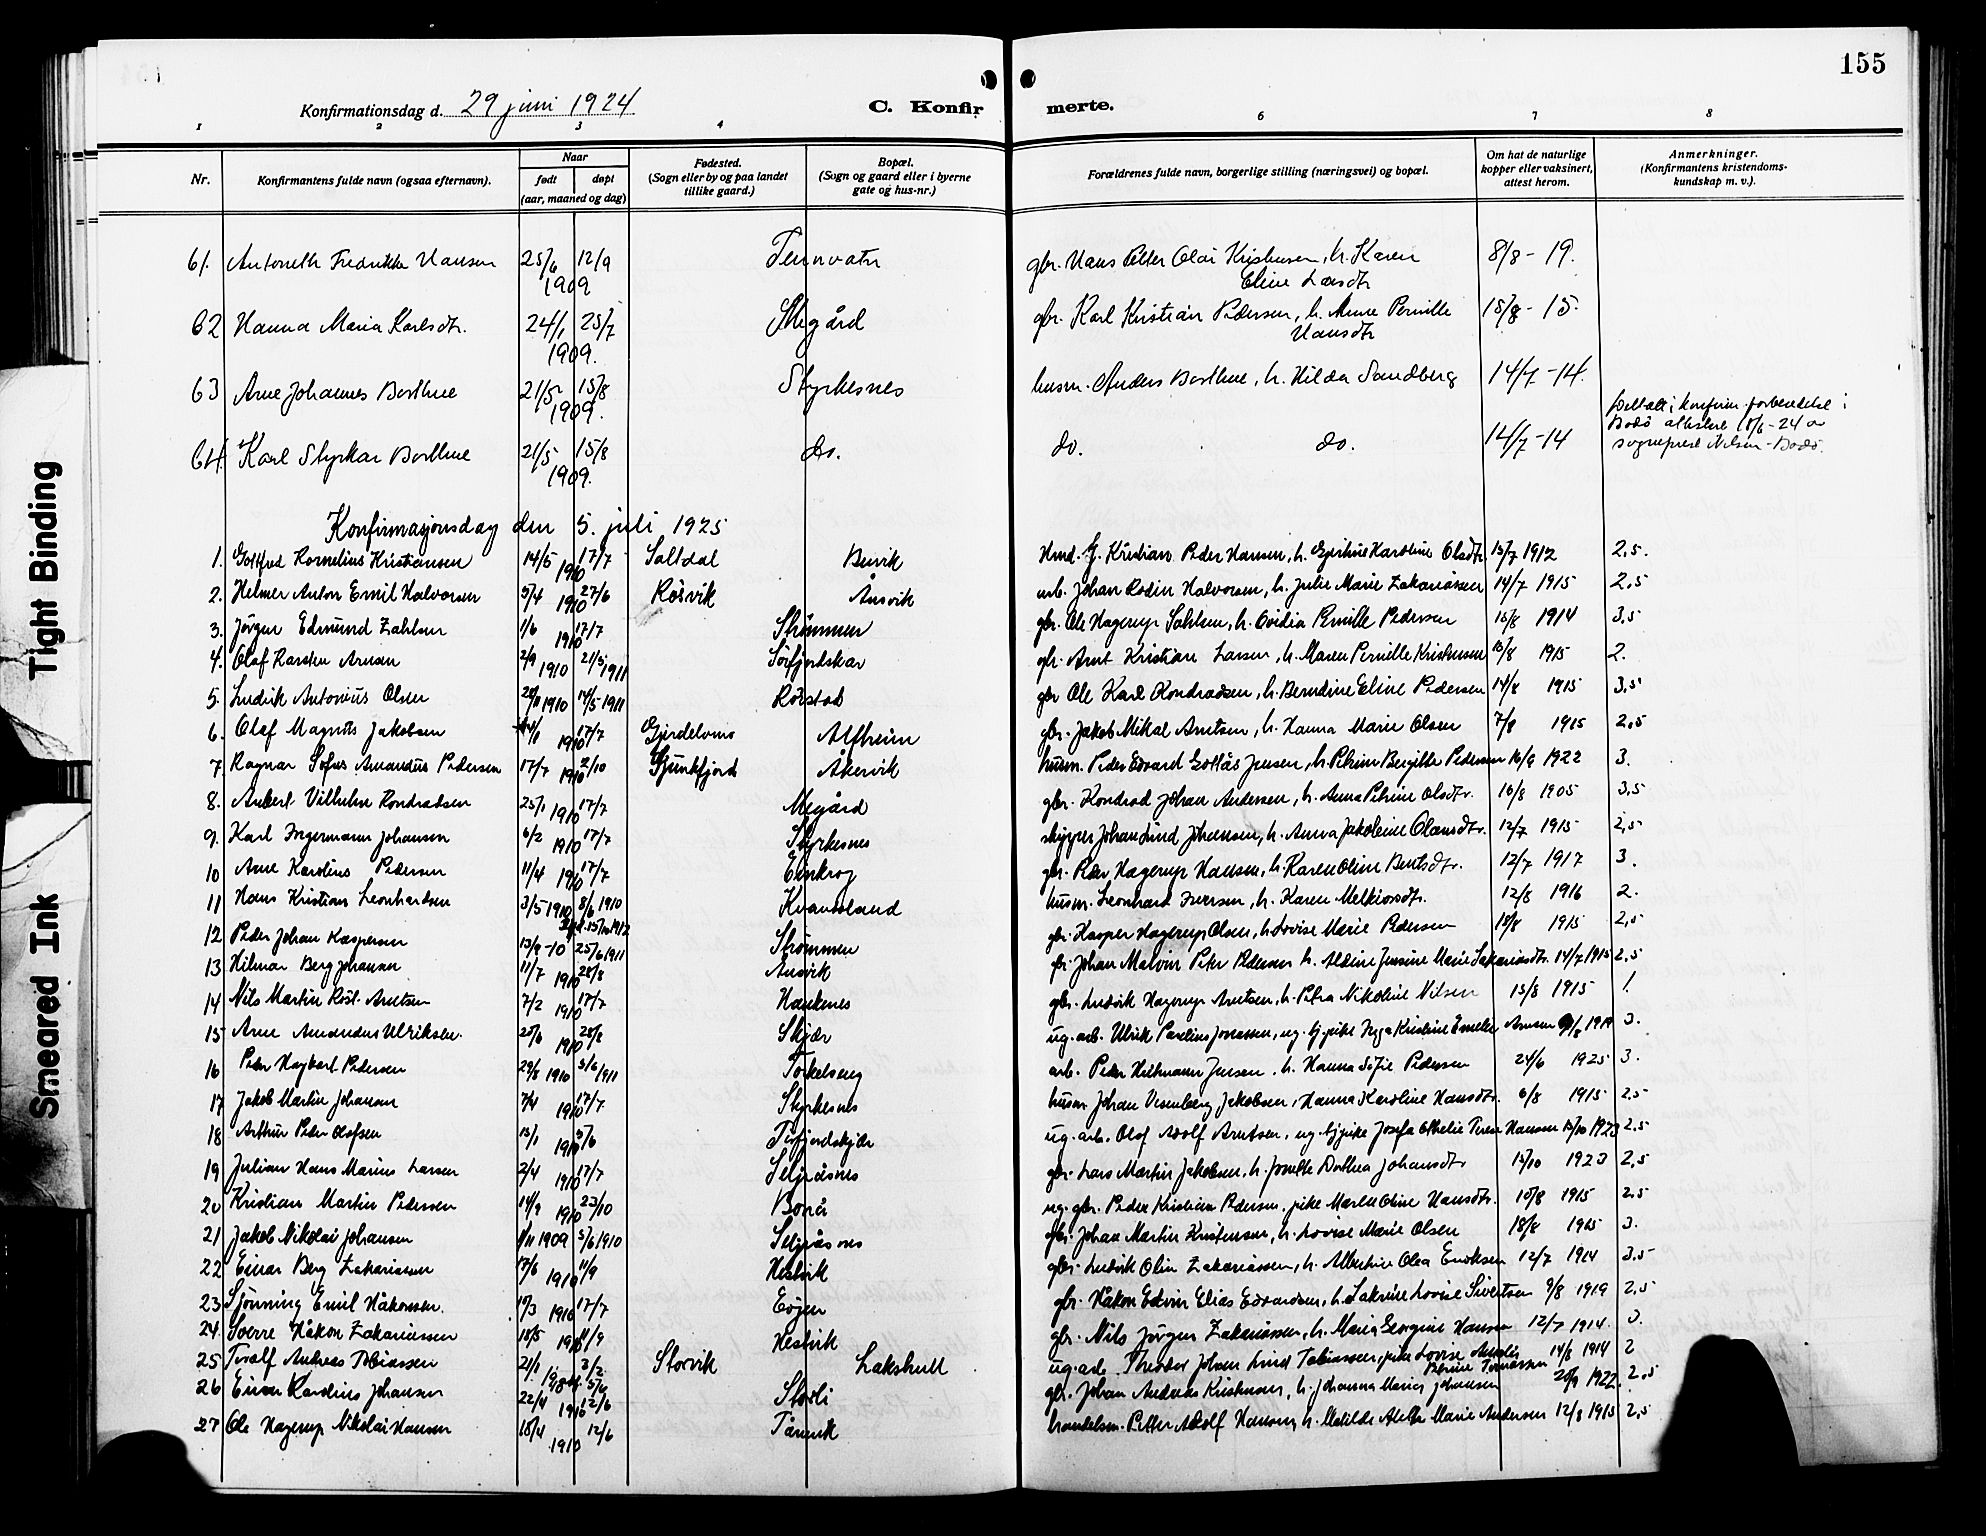 155
Konfirmationsdag d. 29 juni 1924
C. Konfirmerte.
1 2 3 4 6 7 8
Nr.
Konfirmantens fulde navn (ogsaa efternavn).
Naar
født
døpt
(aar, maaned og dag)
Fødested.
(Sogn eller by og paa landet
tillike gaard.)
Bopæl.
(Sogn og gaard eller i byerne
gate og hus-nr.)
Forældrenes fulde navn, borgerlige stilling (næringsvei) og bopæl.
Om hat de naturlige
kopper eller vaksinert,
attest herom.
Anmerkninger.
(Konfirmantens kristendoms-
kundskap m. v.).
61. Antoneth Fredrikke Hansen 25/6 12/9 Tennvatn gbr. Hans Peter Olai Kristensen, h. Karen 8/8 - 19.
1909 Eline Larsdtr
62 Hanna Maria Karlsdtr. 24/1 25/7 Megård gbr. Karl Kristian Pedersen, h. Anne Pernille 15/8 - 15.
1909. Hansdtr
63 Arne Johannes Berthne 21/5 15/8 Styrkesnes husm. Anders Berthne, h. Hilda Sandberg 14/7 - 14.
1909.
64 Karl Styrkar Berthne 21/5 15/8 do. do. do. 14/7 - 14
1909. sogneprest Nilsen - Bodø.
Konfirmasjonsdag den 5. juli 1925
1. Gottfred Kornelius Kristiansen 14/5 1910 17/7 Saltdal Buvik Kristian Peder Hansen, h. Karoline Olsdtr 15/7 1912 2,5.
2. Helmer Anton Emil Halvorsen 5/4 1910 27/6 Røsvik Ånsvik arb. Johan Rodin Halvorsen, h. Julie Marie Zakariassen 14/7 1915 2,5
3. Jørgen Edmund Zahlsen 1/6 1910 17/7 Strømmen gbr. Ole Hagerup Sahlsen, h. Ovidia Pernille Pedersen 15/8 1914 3,5
4. Olaf Karsten Arntsen 2/9 1910 21/5 1911 Sørfjordskar gbr. Arnt Kristian Larsen, h. Maren Pernille Kristensen 15/8 1915 2.
5. Ludvik Antonius Olsen 20/11 1910 14/5 1911 Rørstad gbr Ole Karl Kondradsen, h. Berndine Eline Pedersen 14/8 1915 3,5
6. Olaf Magnus Jakobsen 1910 17/7 Alfheim gbr. Jakob Mikal Arntsen, h. Hanna Marie Olsen 7/8 1915 2,5
7 Ragnar Sofus Amandus Pedersen 17/7 1910 2/10 Gjunkfjord Åkervik husm. Peder Edvard Jensen, h. Petrine Bergitte Pedersen 16/9 1922 3.
8. Ankert Vilhelm Kondradsen 25/1 1910 17/7 Megård gbr. Kondrad Johan Andersen, h. Anna Petrine Olsdtr. 16/8 1905 3,5
9. Karl Ingermann Johansen 6/2 1910 17/7 Styrkesnes skipper Johan Lind Johansen, h. Anna Jakobine Olamsdtr. 12/7 1915 2,5
10 Arne Karolius Pedersen 11/4 1910 17/7 Elvkrog gbr. Peder Hagerup Hansen, h. Karen Oline Bentsdtr. 12/7 1917 3.
11 Hans Kristian Leonhardsen 3/5 1910 8/6 1910 Kvannland husm. Leonhard Iversen, h. Karen Melkiorsdtr. 12/8 1916 2.
12 Peder Johan Kaspersen 13/9 -10 25/6 1911 Strømmen gbr. Kasper Hagerup Olsen, h. Lovise Marie Pedersen 18/8 1915 2,5
13 Hilmar Berg Johansen 11/7 1910 28/8 Ansvik gbr. Johan Malvin Peter Pedersen h. Aldine Jensine Marie Sakariasdtr. 14/7 1915 2,5
14 Nils Martin Røst Arntsen 7/2 1910 17/7 Haukenes gbr. Ludvik Hagerup Arntsen, h. Petra Nikoline Nilsen 15/8 1915 1.
15 Arne Amandus Ulriksen. 25/6 1910 28/8 Skjær ug. arb. Ulrik Paulius Jonassen, ug. tj. pike Inga Kristine Emelie Arntsen 3.
16 Peder Haybert Pedersen 29/8 1910 5/6 1911 Torkelseng arb. Peder Hilmann Jensen, h. Hanna Sofie Pedersen 24/6 1925 3.
17 Jakob Martin Johansen 7/4 1910 17/7 Styrkesnes husm Johan Vesenberg Jakobsen, Hanna Karoline Hansdtr. 6/8 1915 2,5
18 Arthur Peder Olafsen 13/1 1910 5/6 Torfjordskjær ug. arb. Olaf Adolf Arntsen, ug. tj pike Josefa Othelie Hansen 15/10 1923 2,5
19 Julian Hans Marius Larsen 2/4 1910 17/7 Seljeåsnes gbr. Lars Martin Jakobsen, h. Jonette Dorthea Johansdtr 15/10 1923 2,5
20 Kristian Martin Pedersen 14/9 1910 23/10 Bonå ug. gbr. Peder Kristian Pedersen, pike Maren Oline Hansdtr. 10/8 1915 2,5
21 Jakob Nikolai Johansen 1/11 1909 5/6 1910 Seljeåsnes gbr. Johan Martin Kristensen, h. Lovise Marie Olsen 18/8 1915 3.
22 Einar Berg Zakariassen 17/6 1910 11/9 Hestvik gbr. Ludvik Olin Zakariassen, h. Albertine Olea Eriksen 12/7 1914 3,5
23 Sjønning Emil Håkonsen. 1910 17/7 Evjen gbr. Håkon Edvin Elias Edvardsen, h. Zakrine Lovise Sivertsen 9/8 1919 2,5
24. Sverre Håkon Zakariassen 18/5 1910 11/9 Hestvik gbr. Nils Jørgen Zakariassen, h. Maria Georgine Hansen 12/7 1914. 3.
25 Toralf Andreas Tobiassen 21/1 3/2 Storvik Lakshull ug. arb. Theodor Johan Lind Tobiassen, pike Lovise 14/8 1914 2
26 Einar Karolius Johansen 22/4 1910 12/6 Storli gbr. Johan Andreas Kristensen, h. Johanna Marie Johansen 20/9 1922 2,5
27 Ole Hagerup Nikolai Hansen 18/4 1910 12/6 Tårnvik handelsm. Petter Adolf Hansen, h. Matilde Marie Andersen 12/8 1915 2,5
Tight Binding
Smeared Ink